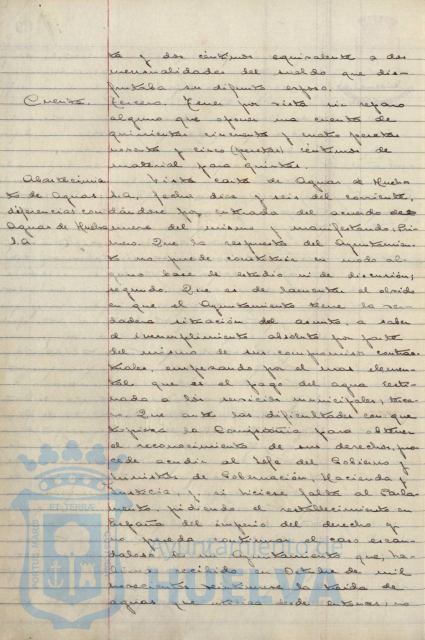 ta y dos céntimos equivalente a dos
mensualidades del sueldo que dis-
frutaba su difunto esposo.
Cuenta. Tercero. Tener por vista sin reparo
alguno que oponer una cuenta de
quinientas cincuenta y cuatro pesetas
noventa y cinco (pesetas) céntimos de
material para quintas.
Abastecimien- Vista carta de Aguas de Huelva
to de Aguas: S.A., fecha diez y seis del corriente,
diferencias con dándose por enterada del acuerdo
Aguas de Huelva mero del mismo y manifestando: Pri-
S.A. mero. Que la respuesta del Ayuntamien-
to no puede constituir en modo al-
guno base de estudio ni de discusión;
segundo. Que es de lamentar el olvido
en que el Ayuntamiento tiene la ver-
dadera situación del asunto, a saber
el incumplimiento absoluto por parte
del mismo de sus compromisos contrac-
tuales, empezando por el mas elemen-
tal, que es el pago del agua desti-
nada a los servicios municipales; terce-
ro. Que ante las dificultades con que
tropieza la Compañía para obtener
el reconocimiento de sus derechos, pro-
cede acudir al Jefe del Gobierno y
Ministros de Gobernación, Hacienda y
Justicia, y si hiciese falta al Parla-
mento, pidiendo el restablecimiento en
España del imperio del derecho y
no pueda continuar el caso escan-
daloso de un Ayuntamiento que, ha-
biéndose recibido en Octubre de mil
novecientos veintinueve la traida de
aguas que utiliza desde entonces, no
PORTUS MARIS ET TERRÆ
Ayuntamiento de
HUELVA